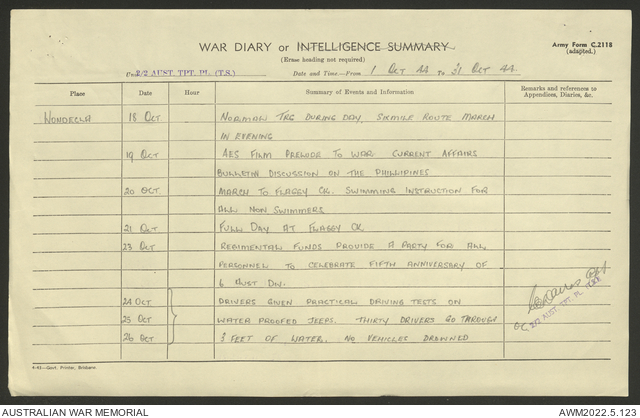 WAR DIARY or INTELLIGENCE SUMMARY
Army Form C.2118
(adapted.)
(Erase heading not required)
Unit 2/2 AUST. TPT. PL. (T.S.) Date and Time—From 1 OCT 44 To 31 OCT 44
Place Date Hour Summary of Events and Information Remarks and references to
Appendices, Diaries, &c.
WONDECLA 18 OCT NORMAL TRG DURING DAY, SIXMILE ROUTE MARCH
IN EVENING
19 OCT AES FILM PRELUDE TO WAR CURRENT AFFAIRS
BULLETIN DISCUSSION ON THE PHILLIPINES
20 OCT. MARCH TO FLAGGY CK. SWIMMING INSTRUCTION FOR
ALL NON SWIMMERS
21 OCT FULL DAY AT FLAGGY CK
23 OCT REGIMENTAL FUNDS PROVIDE A PARTY FOR ALL
PERSONNEL TO CELEBRATE FIFTH ANNIVERSARY OF
6 AUST DIV.
24 OCT DRIVERS GIVEN PRACTICAL DRIVING TESTS ON
25 OCT WATER PROOFED JEEPS. THIRTY DRIVERS GO THROUGH
26 OCT 3 FEET OF WATER. NO VEHICLES DROWNED
OC, 2/2 AUST. TPT. PL.
4-43—Govt. Printer, Brisbane.
AUSTRALIAN WAR MEMORIAL
AWM2022.5.123